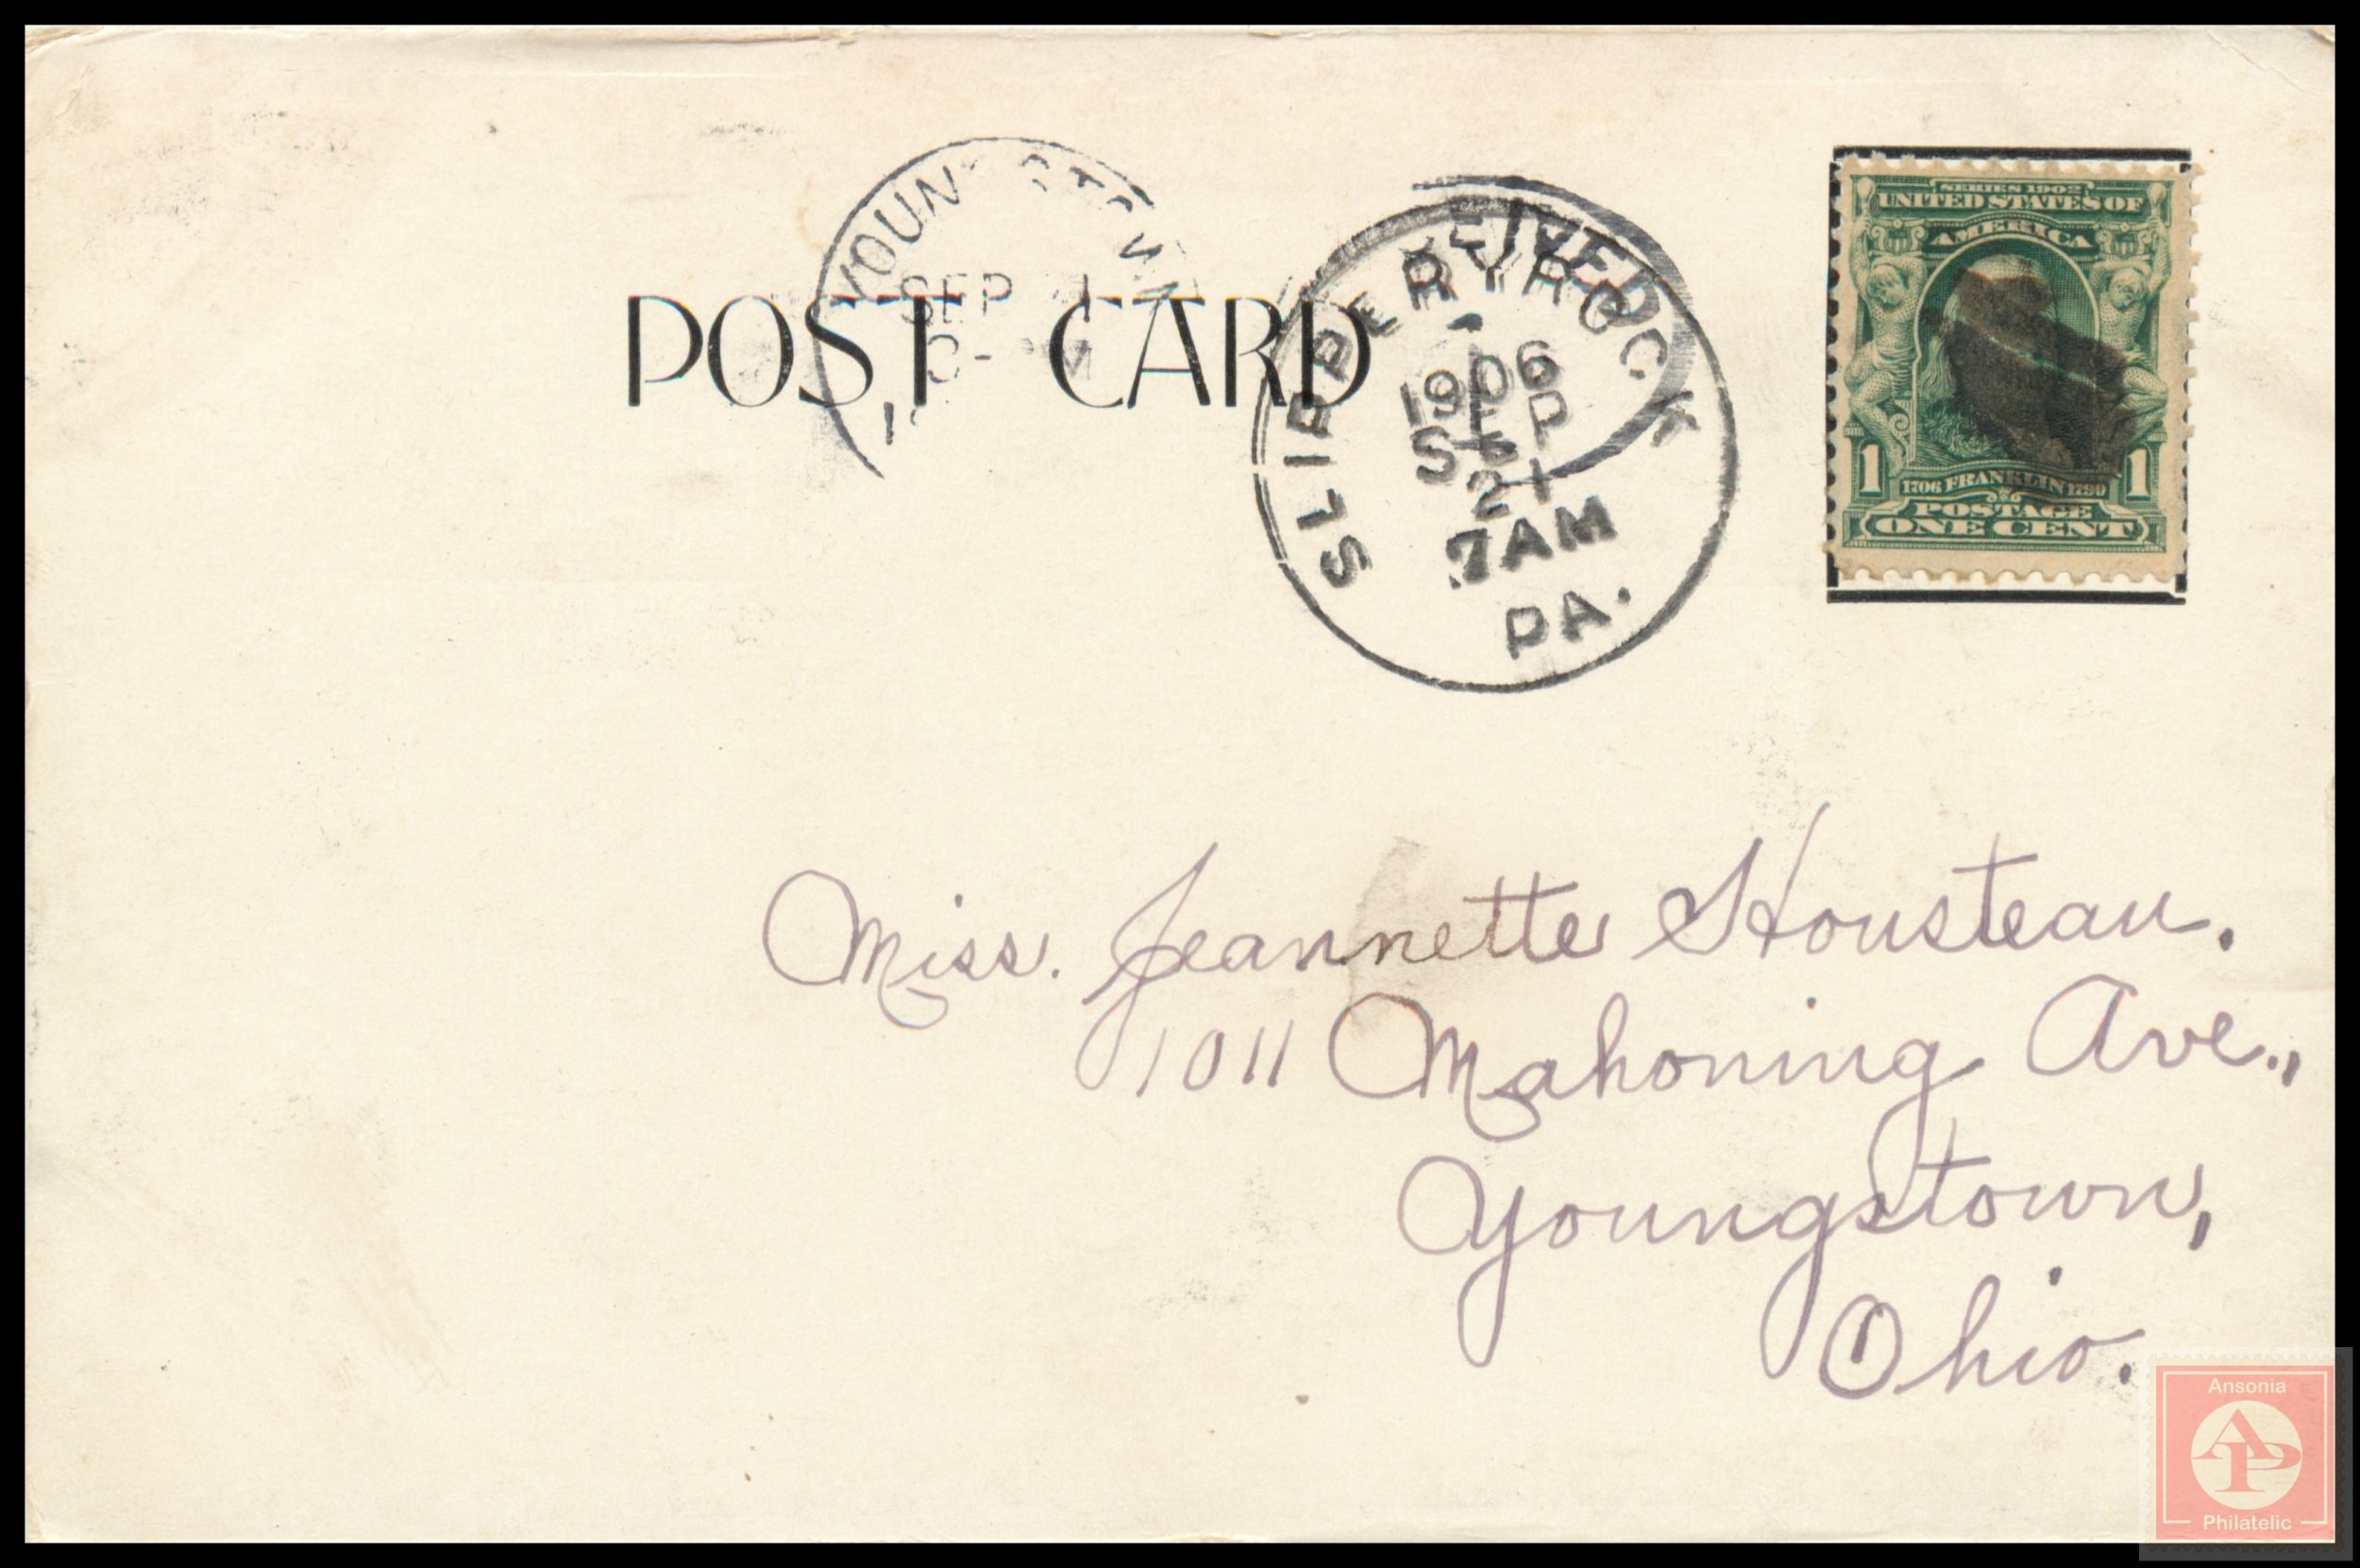 SERIES 1902
UNITED STATES OF
AMERICA
1 1706 FRANKLIN 1790 1
POSTAGE
ONE CENT
SEP
POST CARD
SLIPPERY ROCK
1906
SEP
21
7AM
PA.
Miss. Jeannette Housteau.
1011 Mahoning Ave.,
Youngstown,
Ohio.
Ansonia
AP
Philatelic